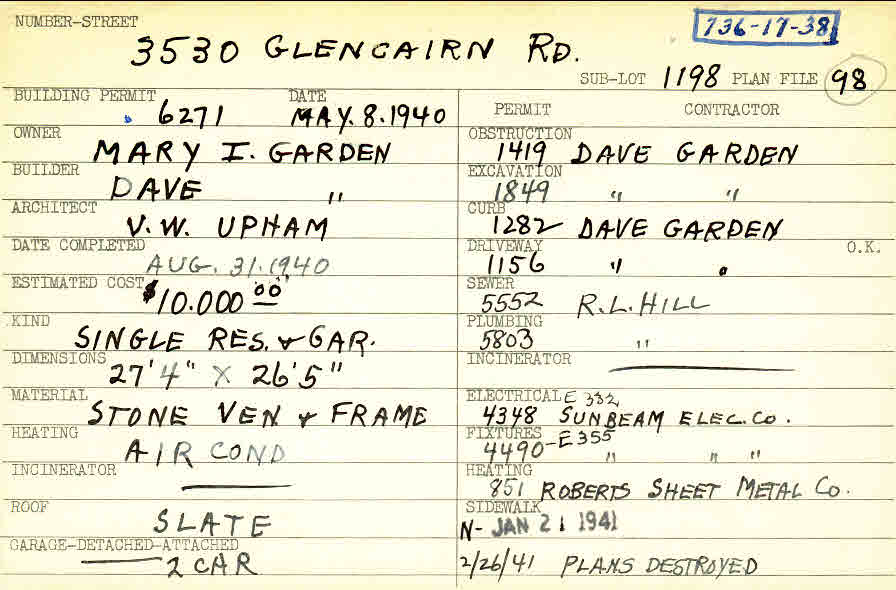 NUMBER-STREET
736-17-38
3530 GLENCAIRN RD.
SUB-LOT 1198 PLAN FILE 98
BUILDING PERMIT DATE
6271 MAY. 8. 1940
OWNER
MARY I. GARDEN
BUILDER
DAVE "
ARCHITECT
V. W. UPHAM
DATE COMPLETED
AUG. 31. 1940
ESTIMATED COST
$10.000 00
KIND
SINGLE RES. & GAR.
DIMENSIONS
27' 4" X 26' 5"
MATERIAL
STONE VEN & FRAME
HEATING
AIR COND
INCINERATOR
ROOF
SLATE
GARAGE-DETACHED-ATTACHED
2 CAR
PERMIT CONTRACTOR
OBSTRUCTION
1419 DAVE GARDEN
EXCAVATION
1849 " "
CURB
1282 DAVE GARDEN
DRIVEWAY O.K.
1156 " "
SEWER
5552 R.L. HILL
PLUMBING
5803 "
INCINERATOR
ELECTRICAL E 332
4348 SUNBEAM ELEC. CO.
FIXTURES E355
4490- " " "
HEATING
851 ROBERTS SHEET METAL CO.
SIDEWALK
N- JAN 21 1941
2/26/41 PLANS DESTROYED